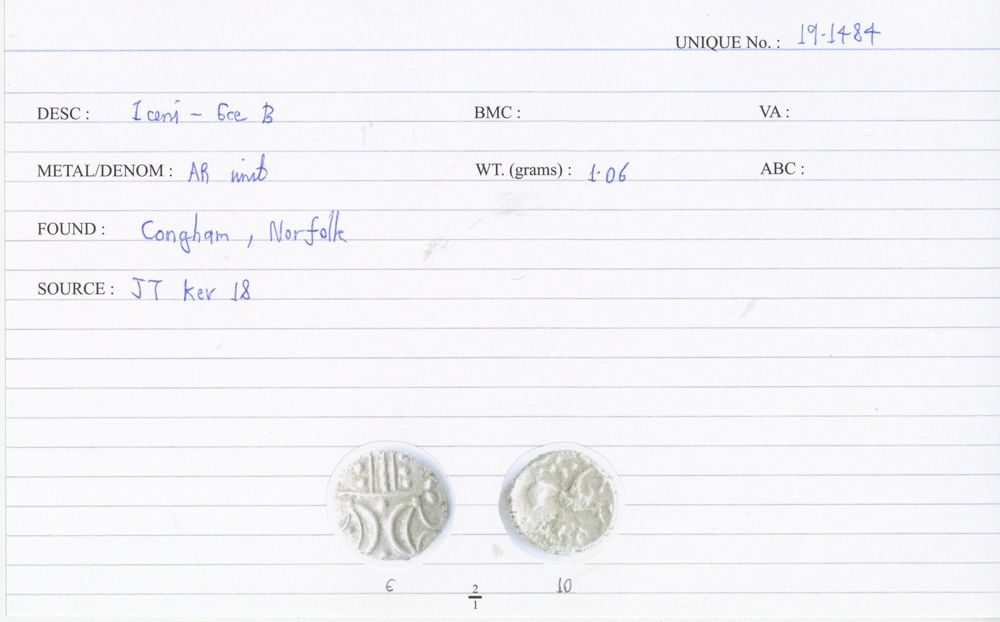 UNIQUE No. : 19-1484
DESC : Iceni - Ece B BMC : VA :
METAL/DENOM : AR unit WT. (grams) : 1.06 ABC :
FOUND : Congham, Norfolk
SOURCE : JT Kev 18
€ 2/1 10